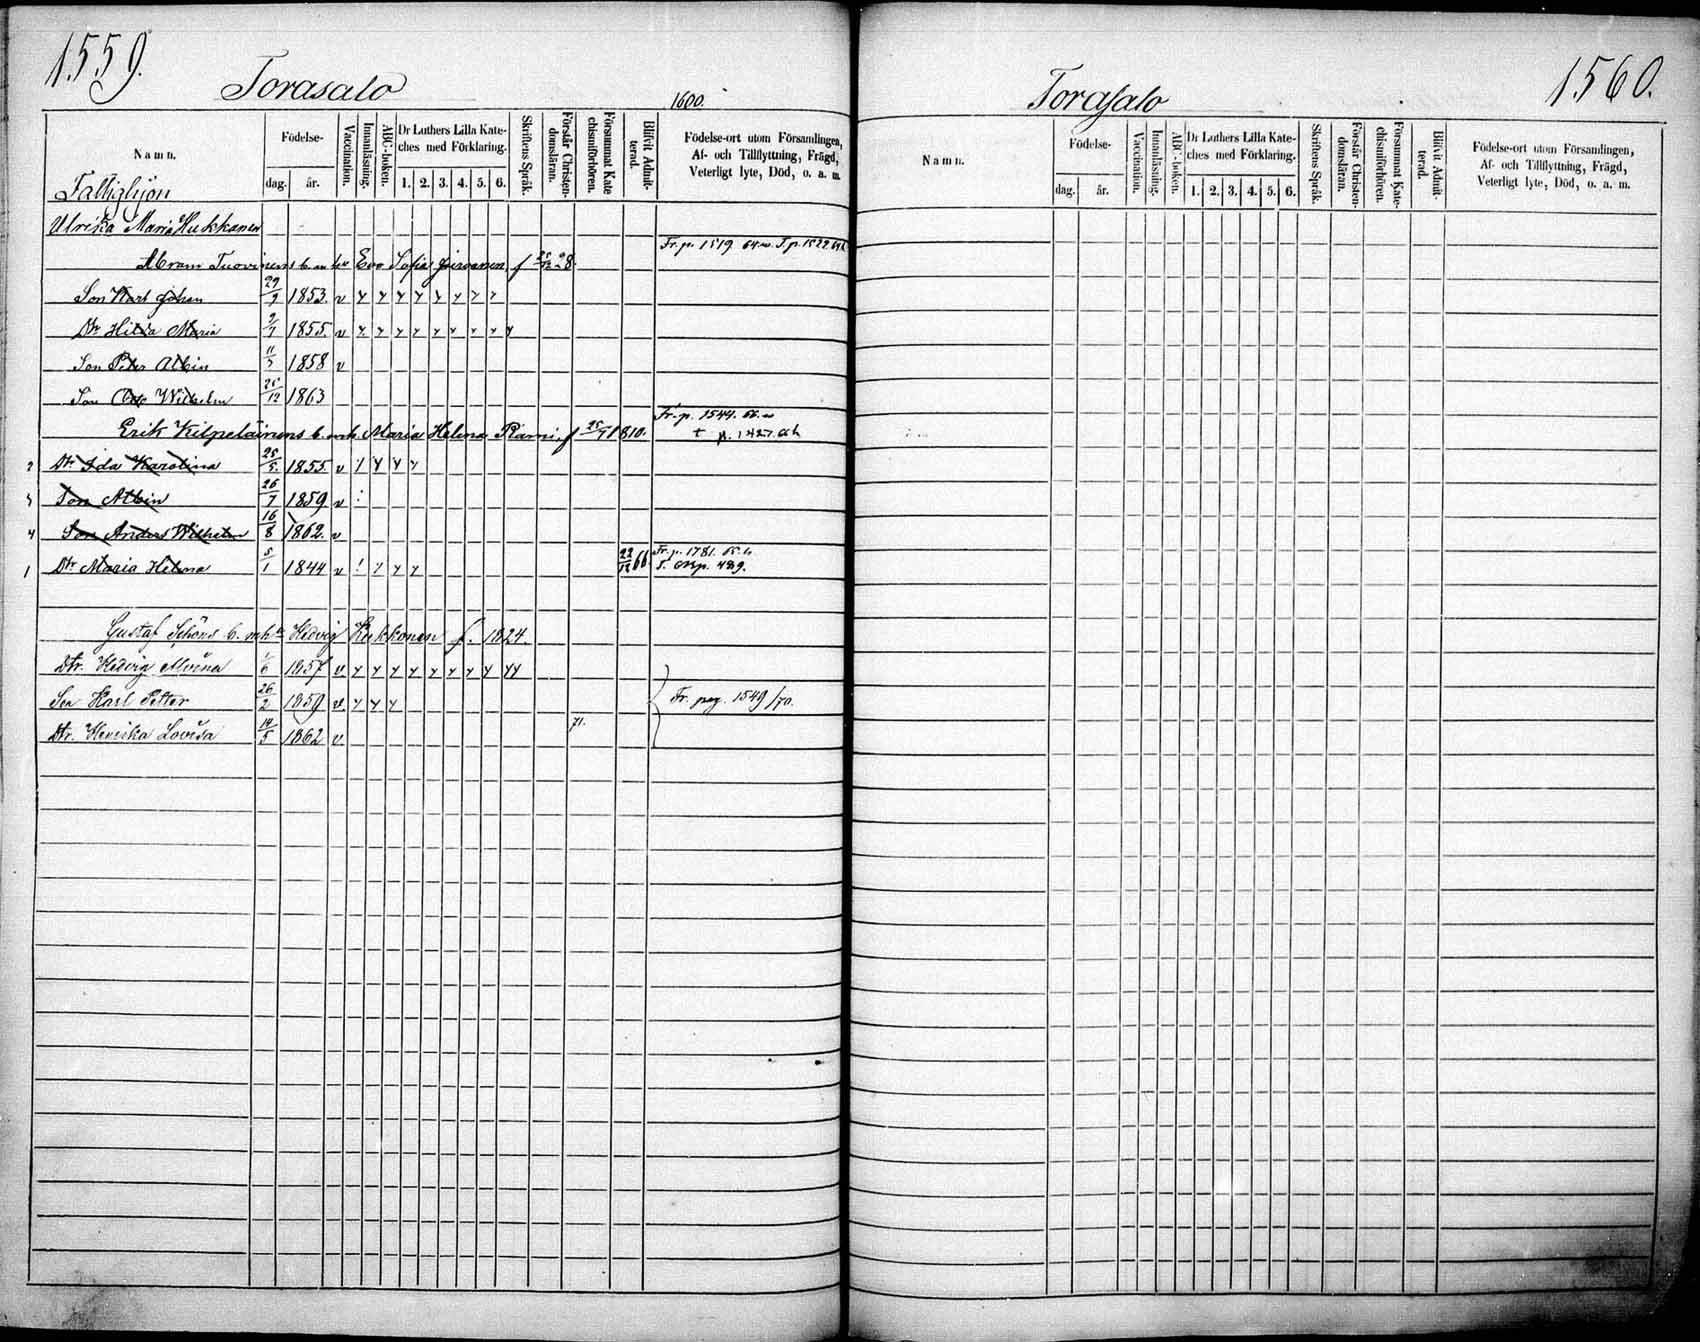 1559.
Torasalo
1600.
Namn.
Födelse-
dag. år.
Vaccination.
Innanläsning.
ABC-boken.
Dr Luthers Lilla Kate-
ches med Förklaring.
1. 2. 3. 4. 5. 6.
Skriftens Språk.
Förstår Christen-
domsläran.
Försummat Kate
chismiförhören.
Blifvit Admit-
terad.
Födelse-ort utom Församlingen,
Af- och Tillflyttning, Frägd,
Veterligt lyte, Död, o. a. m.
Ulrika Maria Hukkanen
Abram Tuovinens b. m hu Eva Sofia f 28.
Fr. p. 1519 64. T p. 1522
Son Karl Johan 29/9 1853. v
Dr Hilda Maria 2/7 1855. v
Son Peter Albin 11/3 1858 v
Son Otto Wilhelm 25/12 1863
Erik Kilpeläinens b. m h. Maria Helena f 25/7 1810.
Fr. p. 1544. 66.
t p. 1427. 66
2 Dr Ida Karolina 25/5. 1855. v
3 Son Albin 26/7 1859 v
4 Son Anders Wilhelm 16/8 1862. v
1 Dr Maria Helena 5/1 1844 v 22/12 66. Fr. p. 1781. 65.
p. 489.
Gustaf Schöns b. m h Hedvig Kukkonen f. 1824
Dr. Hedvig Alvina 1/6 1857 v
Son Karl Petter 26/2 1859 v. Fr. pag. 1549/70.
Dr. Lovisa 14/5 1862 v. 71.
Torasalo
1560.
Namn.
Födelse-
dag. år.
Vaccination.
Innanläsning.
ABC-boken.
Dr Luthers Lilla Kate-
ches med Förklaring.
1. 2. 3. 4. 5. 6.
Skriftens Språk.
Förstår Christen-
domsläran.
Försummat Kate-
chismiförhören.
Blifvit Admit-
terad.
Födelse-ort utom Församlingen,
Af- och Tillflyttning, Frägd,
Veterligt lyte, Död, o. a. m.